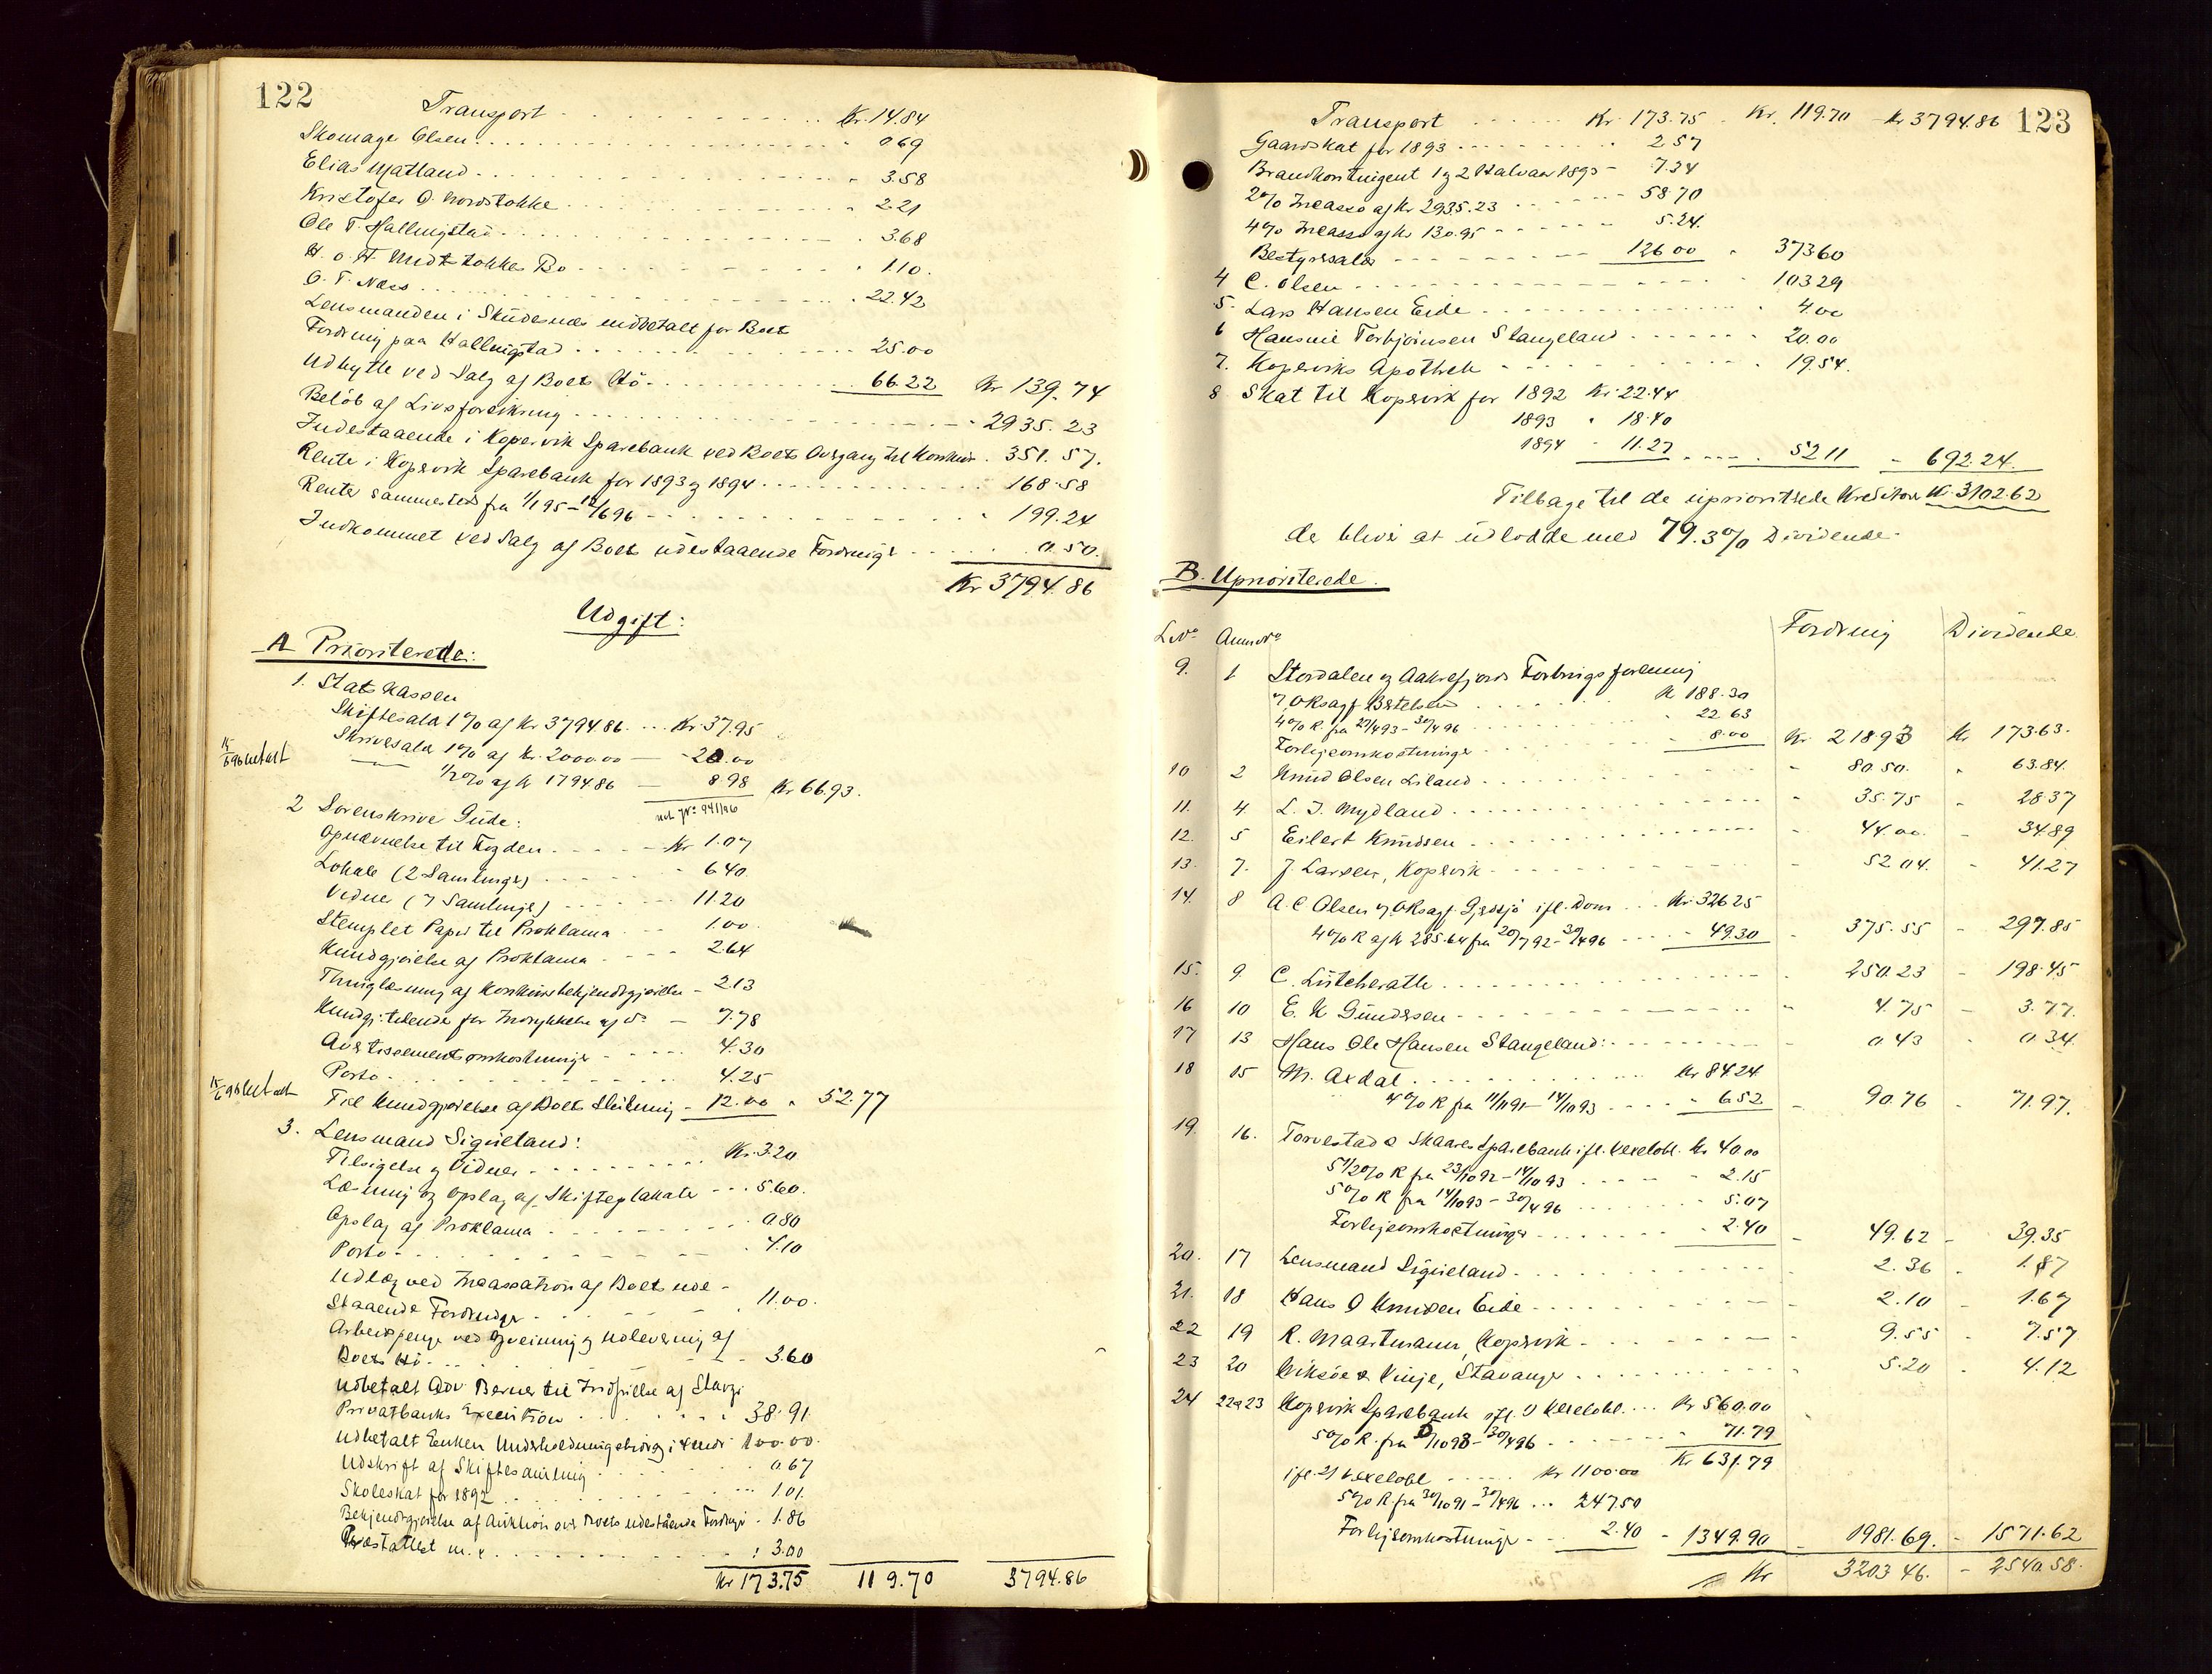 122
Transport . . . . Kr. 14.84
Skomage Olsen . . . . 0 69
Elias Matland . . . . 3.58
Kristofer O. Nordstokke . . . . 2.21
Ole T. Hallingstad . . . . 3.68
H. o. H. Midtstokkes Bo . . . . 1.10.
O. T. Næss . . . . 22.42
Lensmanden i Skudesnæs indbetalt for Boets
Fordring paa Hallingstad . . . . 25.00
Udbytte ved Salg af Boets Hö . . . . 66.22 Kr 139.74
Belöb af Livsforsikring . . . . 2935.23
Indestaaende i Kopervik Sparebank ved Boets Overgang til Konkurs . 351.57.
Rente i Kopervik Sparebank for 1893 og 1894 . . . . 168.58
Renter sammesteds fra 1/1 95 – 12/6 96 . . . . 199.24
Indkommet ved Salg af Boets udestaaende Fordringer . . . . 0.50.
Kr 3794.86
Udgift:
A Prioriterede:
1. Statskassen
Skiftesalær 1% af Kr 3794.86 . . . Kr. 37.95
Skriversalær 1% af Kr. 2000.00 — - 20.00
15/6 96 betalt
1/2% af Kr 1794.86 — 8.98 Kr 66.93.
2 Sorenskriver Gude:
Opnævnelse til Fogden . . . . Kr 1.07
Lokale (2 Samlinger) . . . . 6.40
Vidner (7 Samlinger) . . . . 11.20
Stemplet Papir til Proklama . . . 1.00.
Kundgjörelse af Proklama . . . . 2.64
Thinglæsning af Konkursbekjendtgjörelse - 2.13
Kundgj. tidende for Indrykkelse af do — 7.78
Avertissementsomkostninger . . . . 4.30
Porto . . . . 4.25
15/6 96 betalt
Till Kundgjörelse af Boets Slutning - 12.00 " 52.77
3. Lensmand Sigueland:
Tilsigelse og Vidner . . . . Kr. 3.20
Læsning og Opslag af Skifteplakate . . . 5.60.
Opslag af Proklama . . . . 0.80
Porto . . . . 4.10
Udlæg ved Incassation af Boets ude-
staaende Fordringer . . . . 11.00.
Arbeidspenge ved Opveining og Udlevering af
Boets Hö . . . . 3.60
Udbetalt Adv. Berner til Indfrielse af Stavgr
Privatbanks Execution . . . . 38.91
Udbetalt Enken Underholdningsbidrag i 4 Mdr 100.00.
Udskrift af Skiftesamling . . . . 0.67
Skoleskat for 1892 . . . . 1.01.
Bekjendtgjörelse af Auktion over Boets udestående Fordringer . 1.86
Præstattest m. v. . . . . : 3.00
Kr 173.75 119.70 3794.86
123
Transport . . . . Kr. 173.75 . Kr. 119.70 – Kr 3794.86
Gaardskat for 1893 . . . . 2 57
Brandkontingent 1 og 2 Halvaar 1893 – 7.34
2% Incasso af Kr 2935.23 . . . . 58.70
4% Incasso af Kr 130.95 . . . . 5.24.
Bestyrersalær . . . . 126 00 " 373 60
4 C. Olsen . . . . 103 29
5. Lars Hansen Eide . . . . 4.00
6 Hansine Torbjörnsen Stangeland . . . . 20.00
7. Koperviks Apothek . . . . 19.54.
8 Skat til Kopervik for 1892 Kr. 22.44
1893 " 18.40
1894 - 11.27 . . . . 52 11 – 692.24.
Tilbage til de uprioriterede Kreditorer Kr. 3102.62
der bliver at udlodde med 79.3% Dividende.
B. Uprioriterede.
Lno Anmno Fordring Dividende
9. 1 Stordalen og Aakrefjords Forbrugsforening
v/ OKsagf. Bertelsen . . . . Kr 188.30
4% R. fra 27/4 93 – 30/4 96 . . . . 22 63
Forligsomkostninger . . . . 8.00 Kr. 218 93 Kr 173 63.
10 2 Knud Olsen Liland . . . . 80.50. " 63.84.
11. 4. L. J. Mydland . . . . 35.75 - 28.37
12. 5 Eilert Knudsen . . . . 44.00. - 34.89
13. 7. J. Larsen, Kopervik . . . . 52 04. - 41.27
14. 8 A. C. Olsen v/ OKsagf. Gjessjö ifl. Dom . . . Kr. 326 25
4% R af Kr 285.64 fra 20/7 92 – 30/4 96 . . . . 49.30 375.55 - 297.85
15. 9. C. Lütcherath . . . . 250.23 - 198.45
16 10 E. K Gundersen . . . . 4.75 - 3.77.
17 13 Hans Ole Hansen Stangeland . . . . 0 43 - 0.34.
18 15 M. Axdal . . . . Kr 84 24
4% R fra 11/11 91 – 14/10 93 . . . . 6.52 90.76 - 71.97.
19. 16. Torvestad & Skaares Sparebank ifl. Vexelobl. Kr 40.00
5 1/2% R fra 23/10 92 – 14/10 93 . . . . 2.15
5% R fra 14/10 93 – 30/4 96 . . . . 5.07
Forligsomkostninger . . . . 2.40 49.62 - 39.35
20. 17 Lensmand Sigueland . . . . 2.36 - 1.87
21. 18 Hans O Knudsen Eide . . . . 2.10 - 1.67
22 19 R. Maartmann, Kopervik . . . . 9.55 - 7.57
23 20 Eriksöe & Vinje, Stavanger . . . . 5.20 - 4.12
24 22 & 23 Kopervik Sparebank ifl. Vexelobl. . . . Kr 560.00
5% R. fra /10 93 – 30/4 96 . . . . 71.79
Kr 631.79
ifl. 2) Vexelobl . . . . Kr 1100.00
5% R fra 30/10 91 – 30/4 96 . . . 247 50
Forligsomkostninger . . 2.40 - 1349.90 1981.69. - 1571.62
Kr 3203 46. - 2540.58.